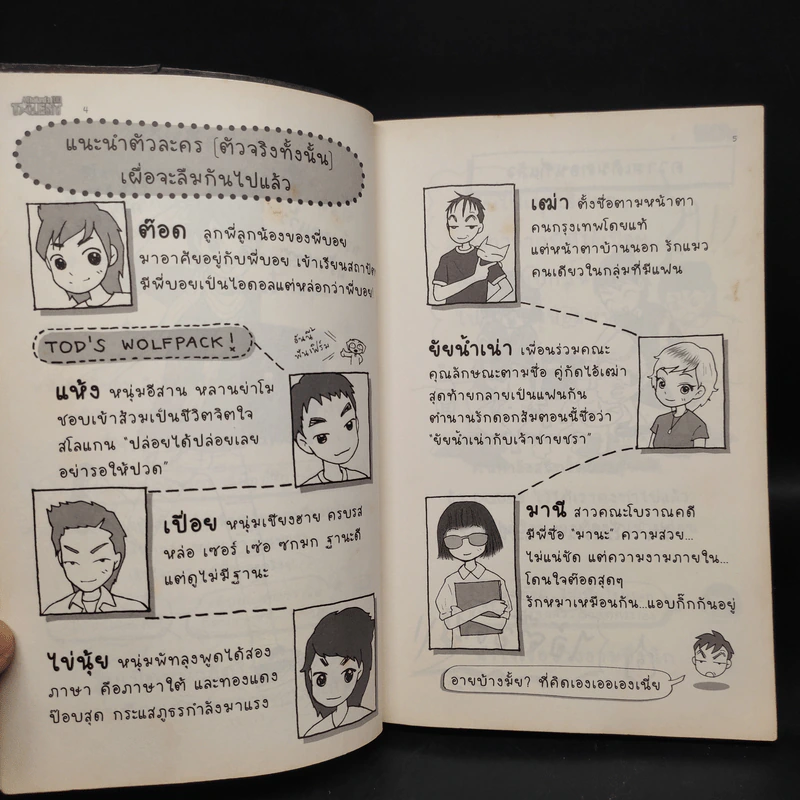 TALENT
4
แนะนำตัวละคร (ตัวจริงทั้งนั้น)
เผื่อจะลืมกันไปแล้ว
ต๊อด ลูกพี่ลูกน้องของพี่บอย
มาอาศัยอยู่กับพี่บอย เข้าเรียนสถาปัต
มีพี่บอยเป็นไอดอลแต่หล่อกว่าพี่บอย
TOD'S WOLFPACK!
แห้ง หนุ่มอีสาน หลานย่าโม
ชอบเข้าส้วมเป็นชีวิตจิตใจ
สโลแกน "ปล่อยได้ปล่อยเลย
อย่ารอให้ปวด"
เปื่อย หนุ่มเชียงฮาย ครบรส
หล่อ เซอร์ เซ่อ ซกมก ฐานะดี
แต่ดูไม่มีฐานะ
ไข่นุ้ย หนุ่มพัทลุงพูดได้สอง
ภาษา คือภาษาใต้ และทองแดง
ป๊อบสุด กระแสภูธรกำลังมาแรง
5
เฒ่า ตั้งชื่อตามหน้าตา
คนกรุงเทพโดยแท้
แต่หน้าตาบ้านนอก รักแมว
คนเดียวในกลุ่มที่มีแฟน
ยัยน้ำเน่า เพื่อนร่วมคณะ
คุณลักษณะตามชื่อ คู่กัดไอ้เฒ่า
สุดท้ายกลายเป็นแฟนกัน
ตำนานรักดอกส้มตอนนี้ชื่อว่า
"ยัยน้ำเน่ากับเจ้าชายชรา"
มานี สาวคณะโบราณคดี
มีพี่ชื่อ "มานะ" ความสวย...
ไม่แน่ชัด แต่ความงามภายใน...
โดนใจต๊อดสุดๆ
รักหมาเหมือนกัน...แอบกิ๊กกันอยู่
อายบ้างมั้ย? ที่คิดเองเออเองเนี่ย